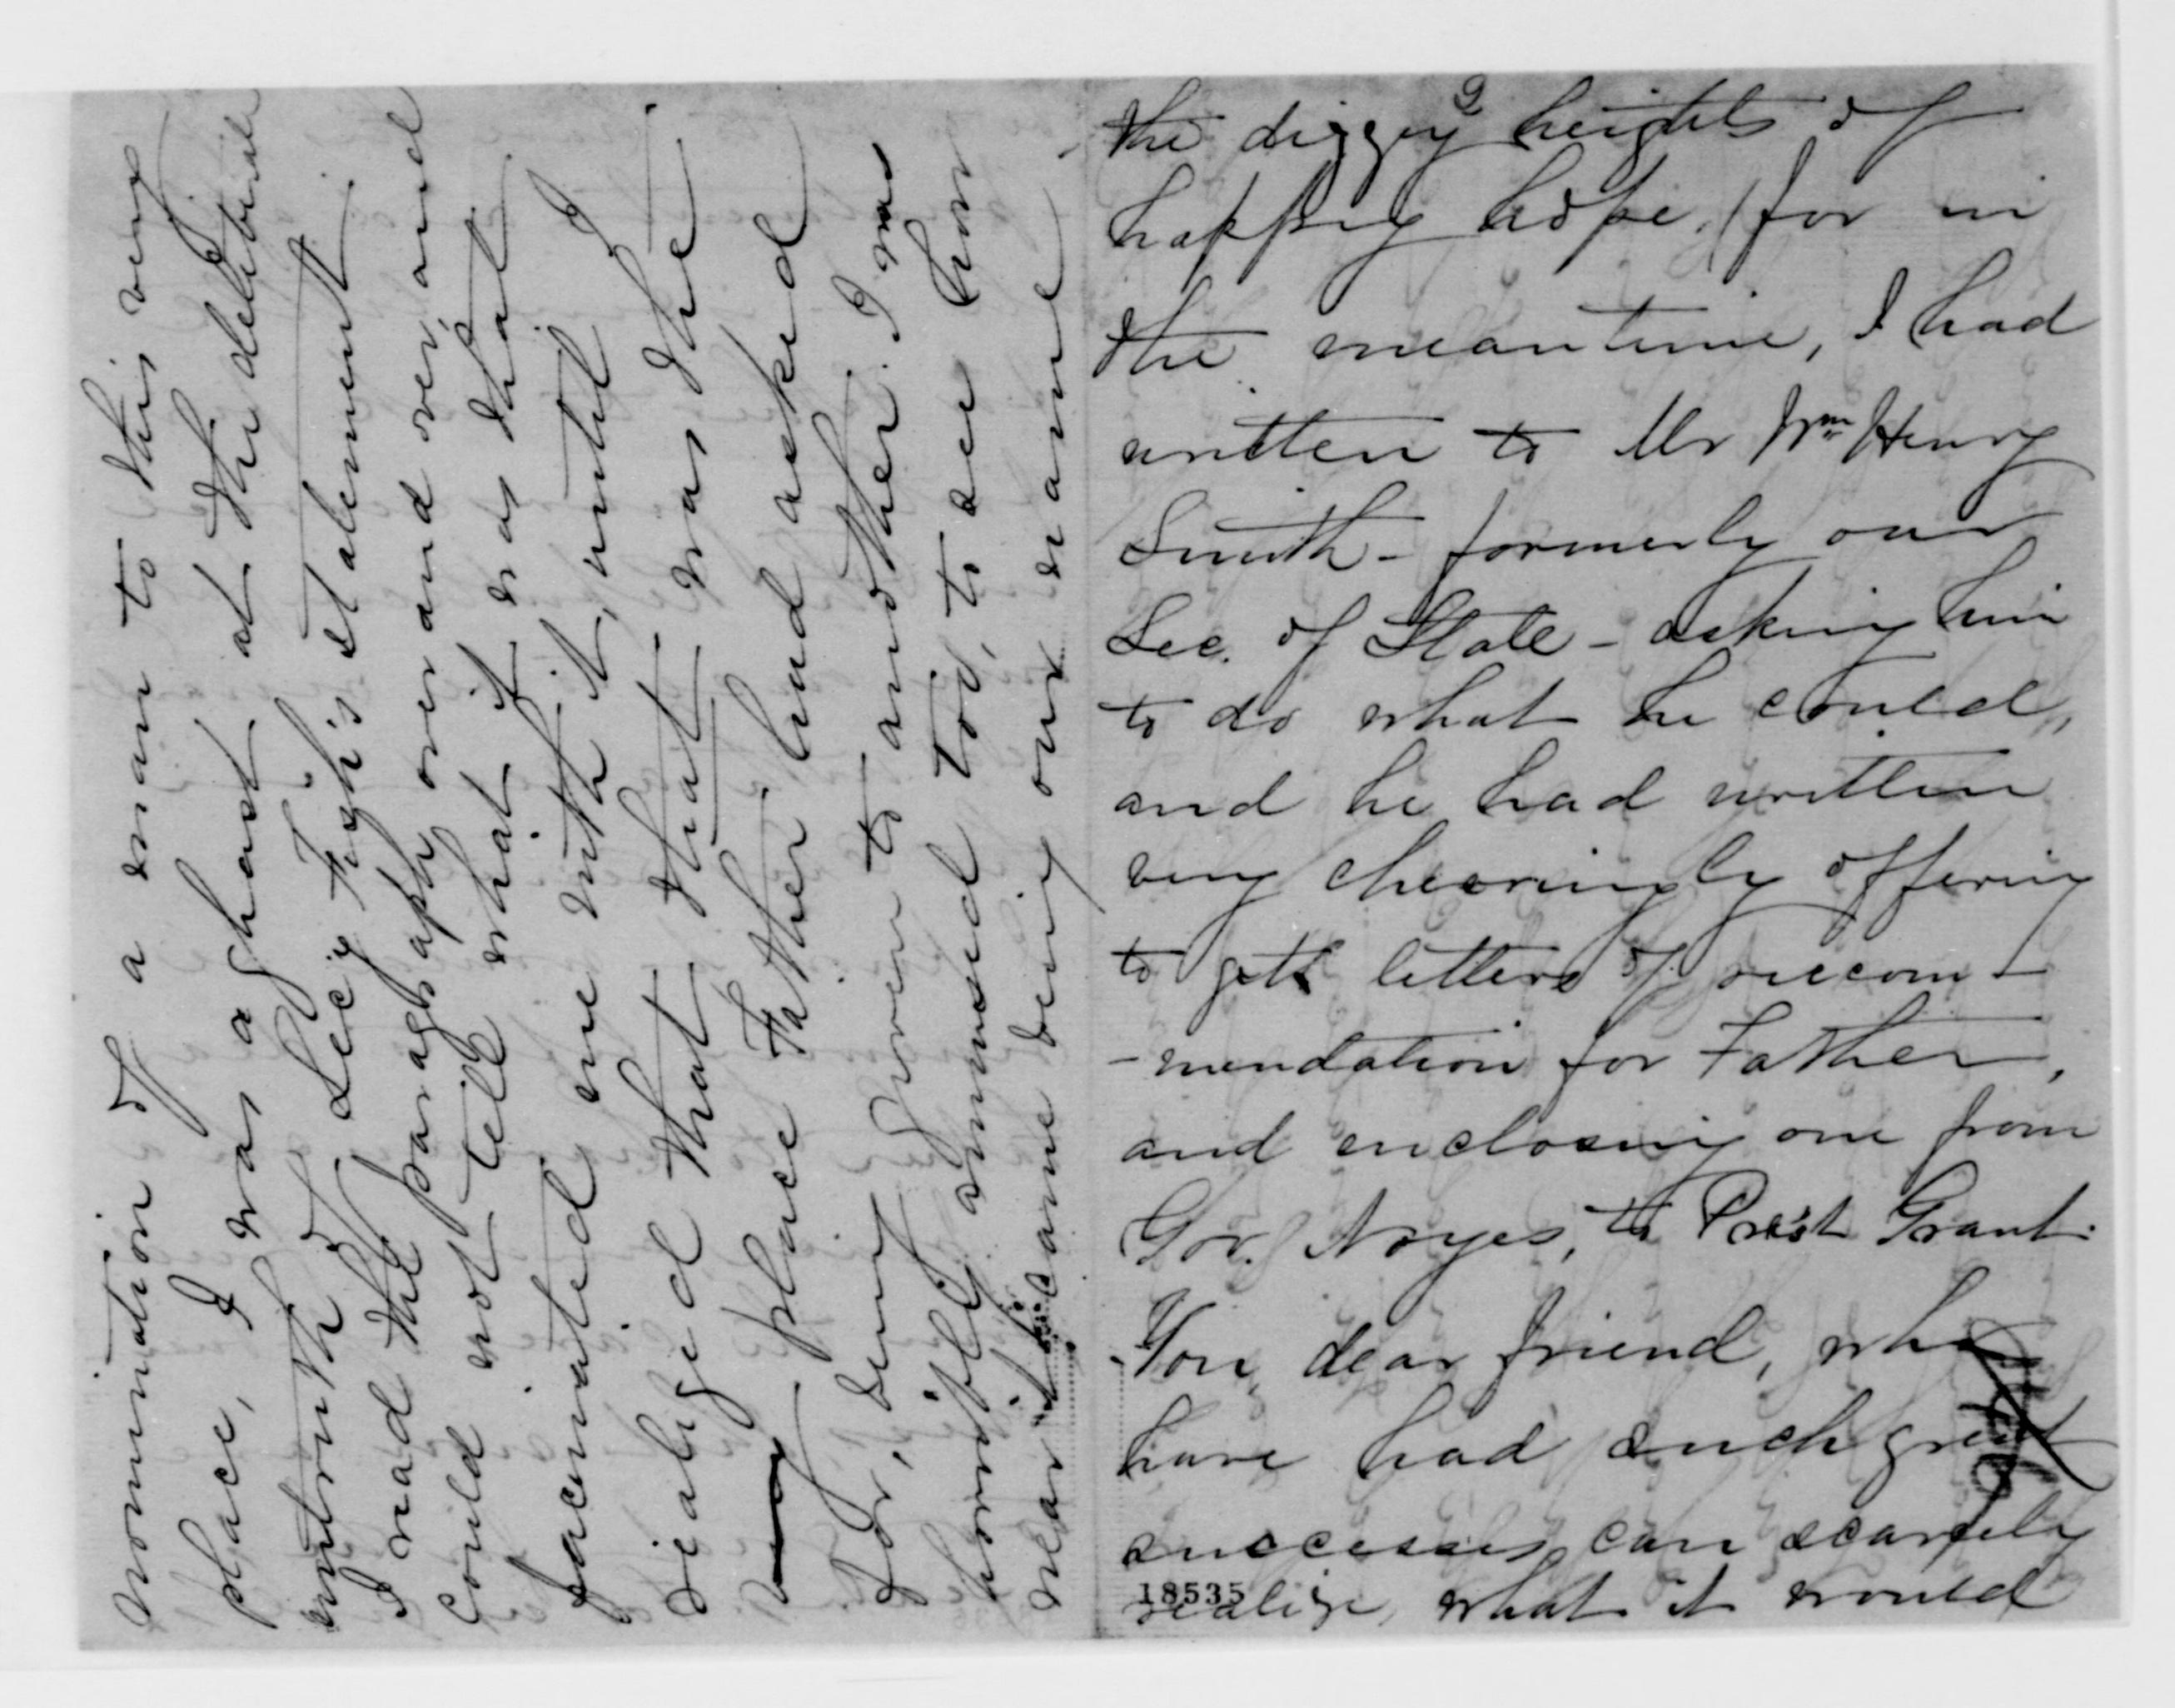 nomination of a man to this very
place, I was aghast at the deliberate
untruth of Secy Fish's statement.
I read the paragraph over and over, and
could not tell what it was that
facinated me with it, until I
realized that that was the
very place Father had asked
for, being given to another. I was
horribly amused too, to see how
near it came being our name
the dizzy heights of
happy hope, (for in
the meantime, I had
written to Mr Wm Henry
Smith - formerly our
Sec. of State - asking him
to do what he could,
and he had written
very cheeringly offering
to get letters of reccom-
-mendation for Father,
and enclosing one from
Gov. Noyes, to Prest Grant.
You, dear friend, who
have had such great
successes, can scarcely
realize, what it would
18535